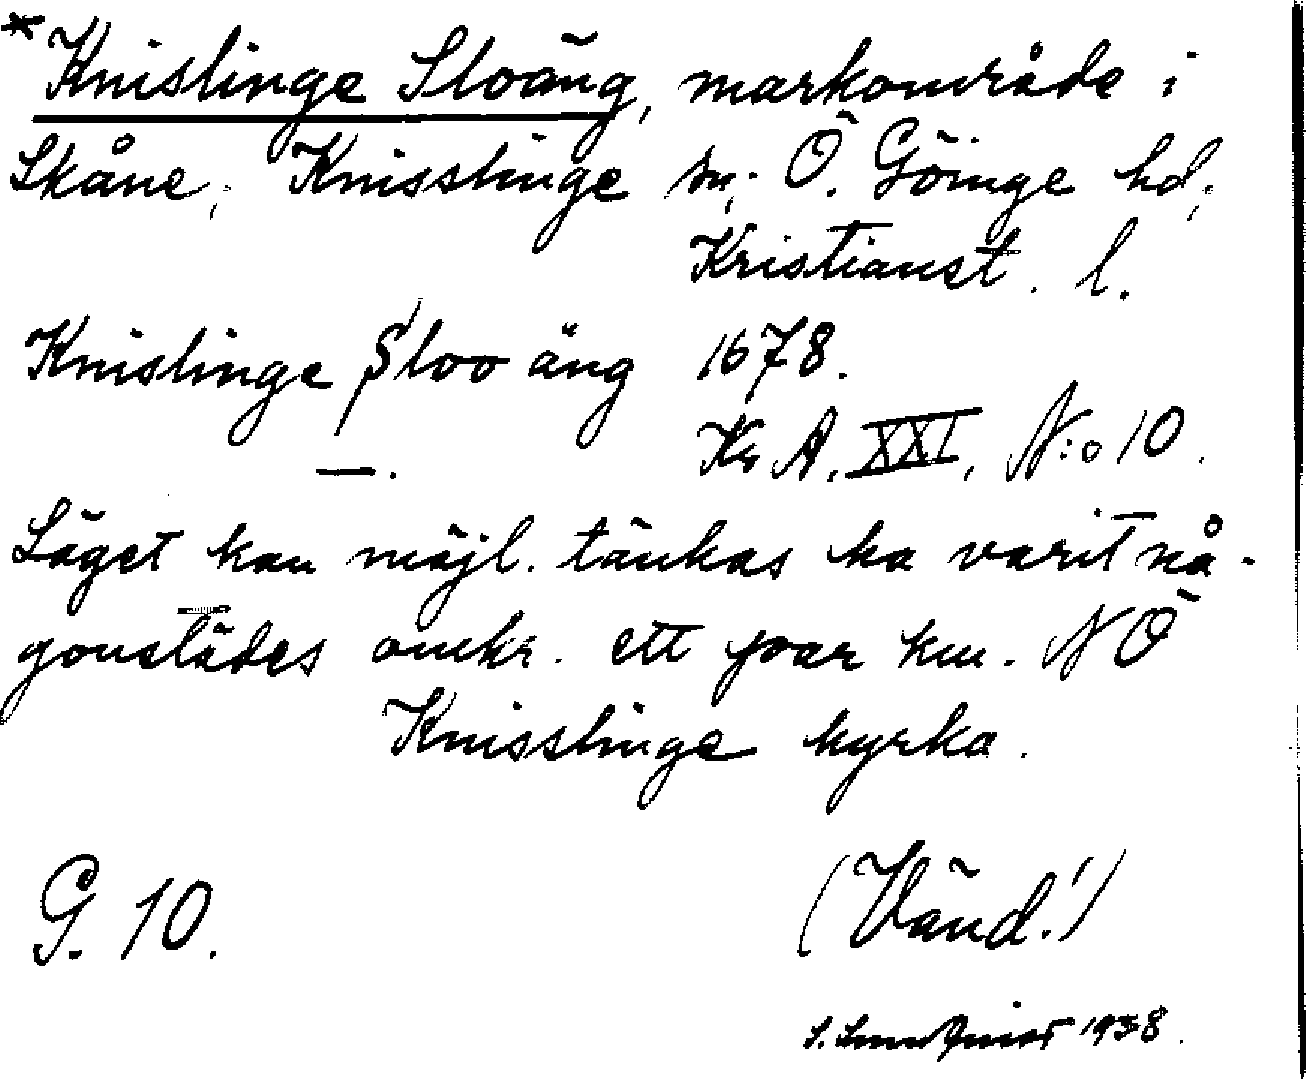 *Knislinge Sloäng, markområde i
Skåne, Knisslinge sn, Ö. Göinge hd,
Kristianst. l.
Knislinge Sloo äng 1678.
Kr A. XXI, N:o 10.
—.
Läget kan möjl. tänkas ha varit nå-
gonstädes omkr. ett par km. NÖ
Knisslinge kyrka.
G. 10.
(Vänd!)
S. Lundquist 1938.